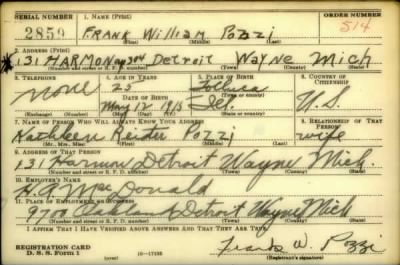 SERIAL NUMBER 1. NAME (Print) ORDER NUMBER
2859 FRANK William Pozzi 514
(First) (Middle) (Last)
2. ADDRESS (Print)
131 HARMON Detroit Wayne Mich
(Number and street or R. F. D. number) (Town) (County) (State)
3. TELEPHONE 4. AGE IN YEARS 5. PLACE OF BIRTH 6. COUNTRY OF CITIZENSHIP
none 25 Toluca U.S.
DATE OF BIRTH (Town or county)
May 12 1915 Ill.
(Exchange) (Number) (Mo.) (Day) (Yr.) (State or country)
7. NAME OF PERSON WHO WILL ALWAYS KNOW YOUR ADDRESS 8. RELATIONSHIP OF THAT PERSON
Kathleen Reister Pozzi wife
(Mr., Mrs., Miss) (First) (Middle) (Last)
9. ADDRESS OF THAT PERSON
131 Harmon Detroit Wayne Mich.
(Number and street or R. F. D. number) (Town) (County) (State)
10. EMPLOYER'S NAME
MacDonald
11. PLACE OF EMPLOYMENT OR BUSINESS
Detroit Wayne Mich
(Number and street or R. F. D. number) (Town) (County) (State)
I AFFIRM THAT I HAVE VERIFIED ABOVE ANSWERS AND THAT THEY ARE TRUE.
REGISTRATION CARD
D. S. S. Form 1 16—17135 Frank W. Pozzi
(Registrant's signature)